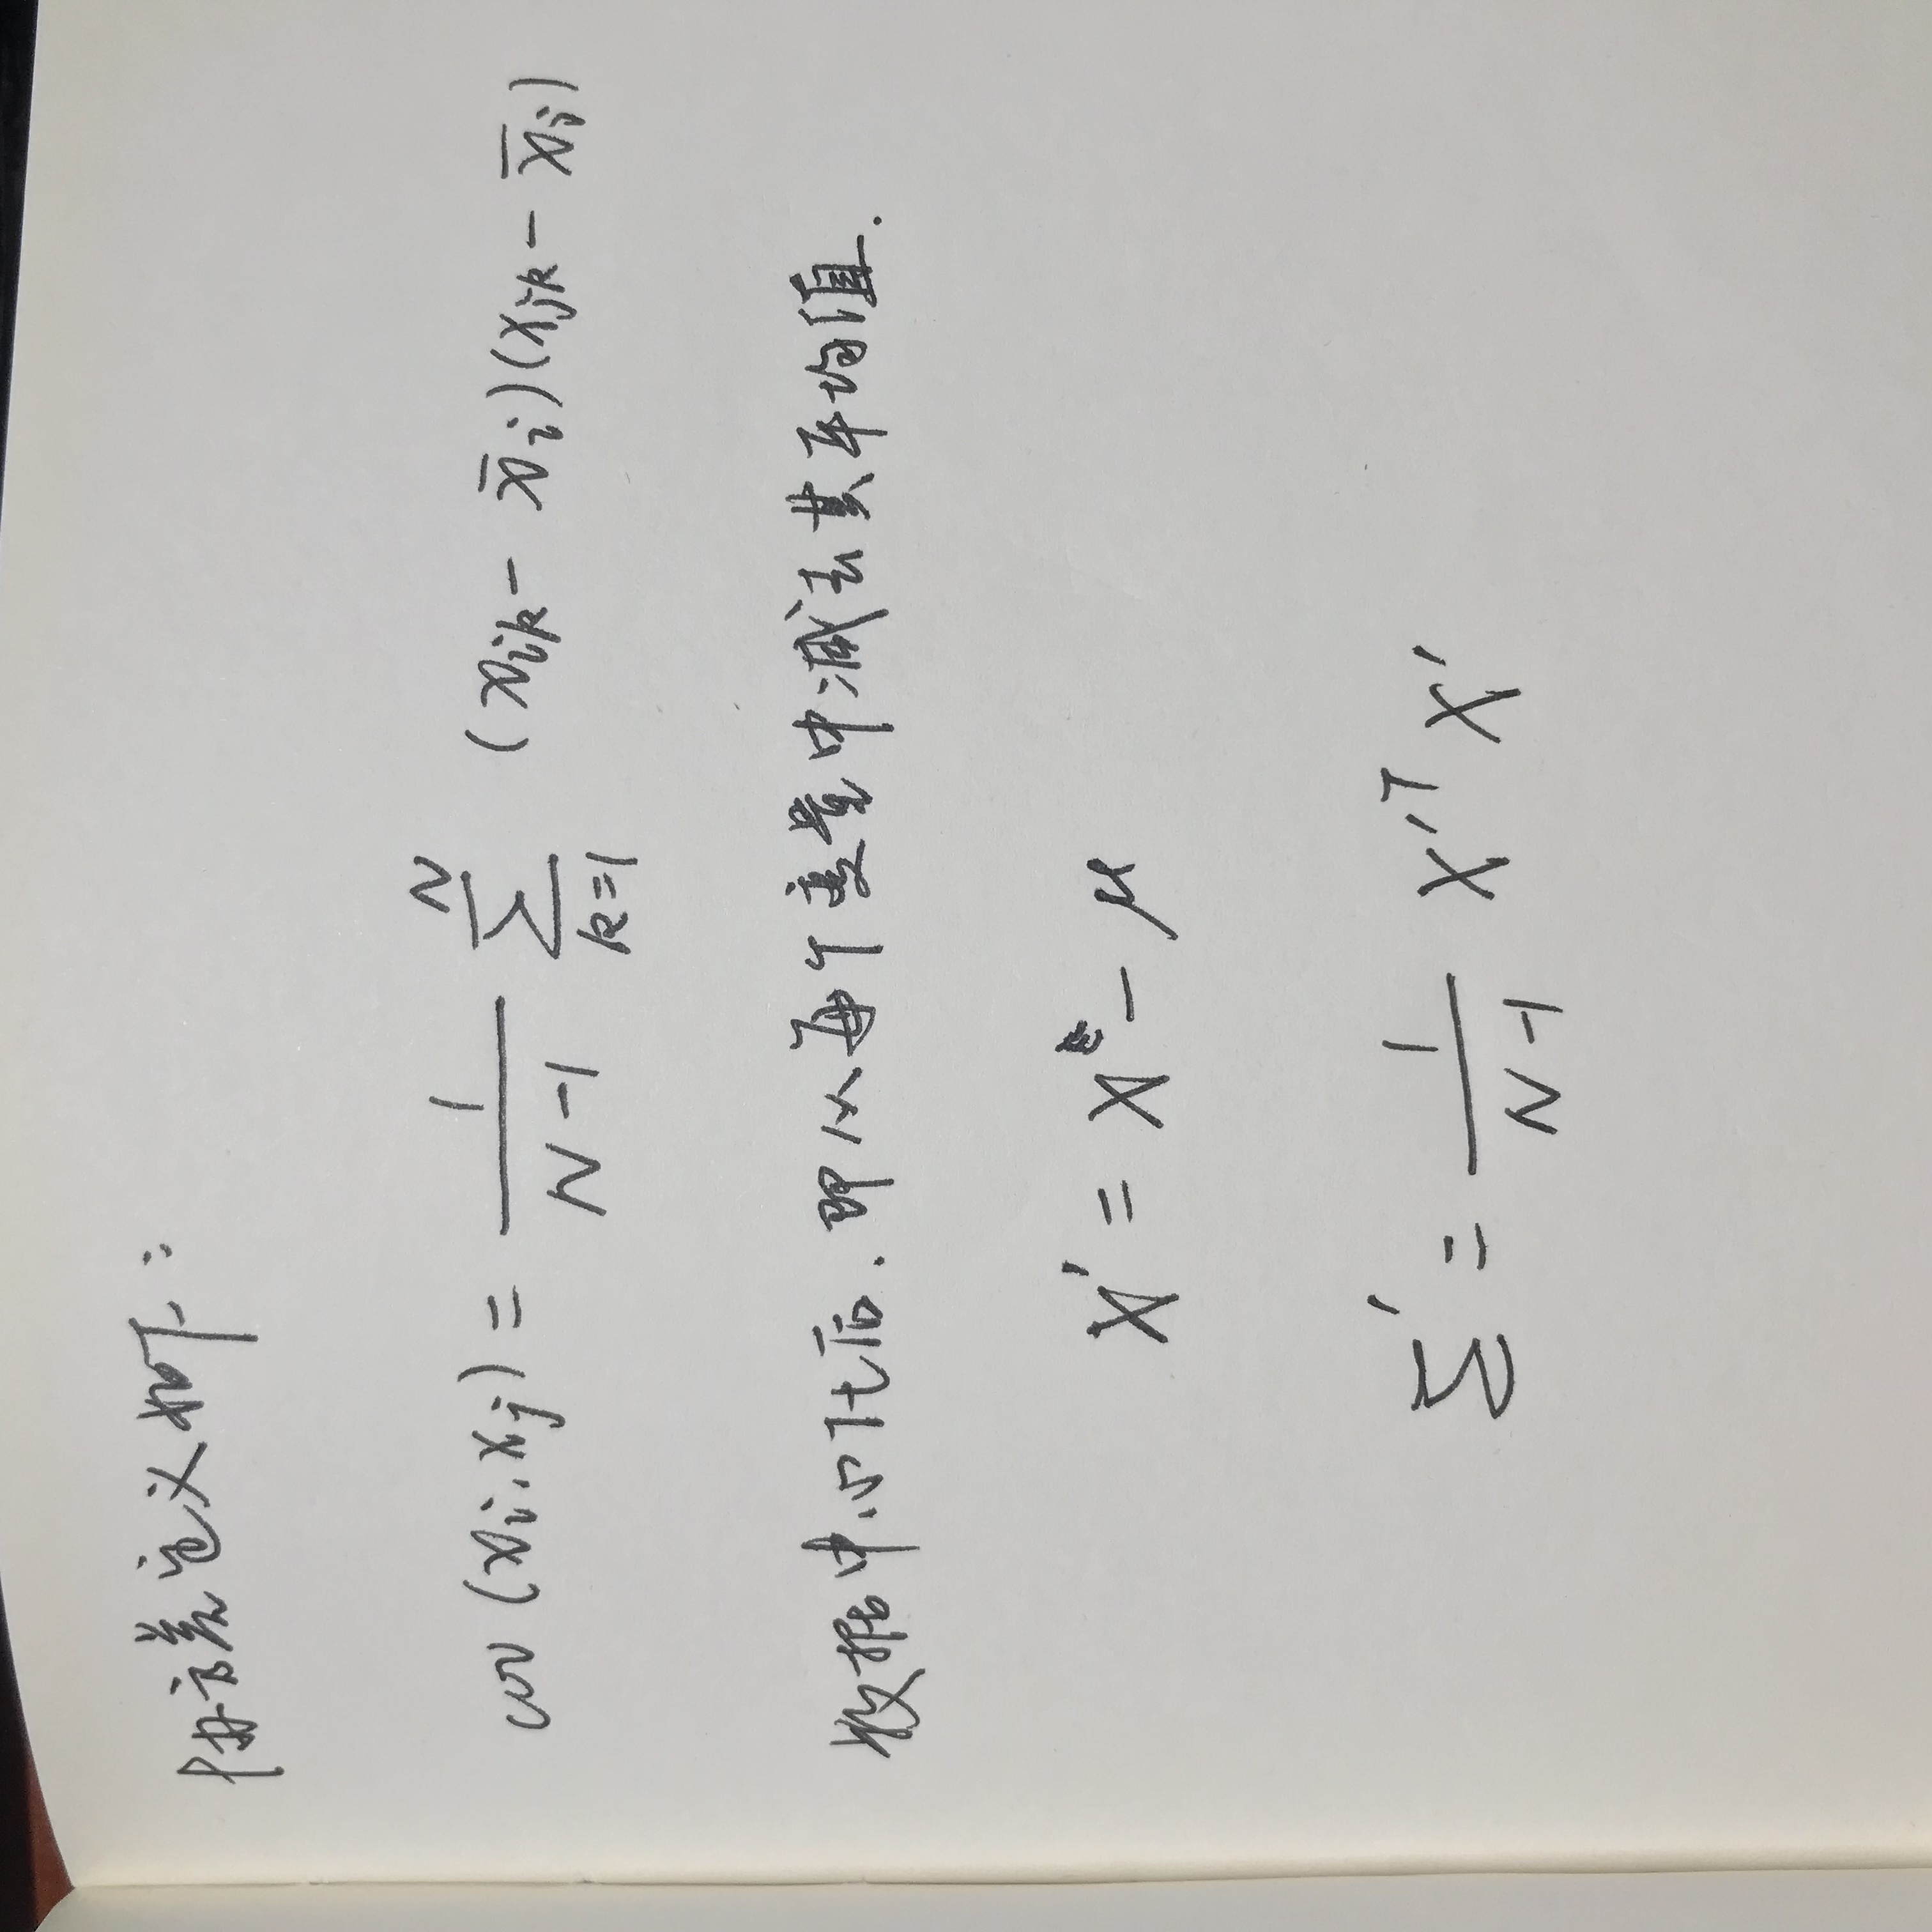 协方差定义如下:
cov (x_i, x_j) = \frac{1}{N-1} \sum_{k=1}^{N} (x_{ik} - \bar{x}_i)(x_{jk} - \bar{x}_j)
数据中心化后,即从每个变量中减去其平均值.
X' = X - μ
Σ' = \frac{1}{N-1} X'^T X'